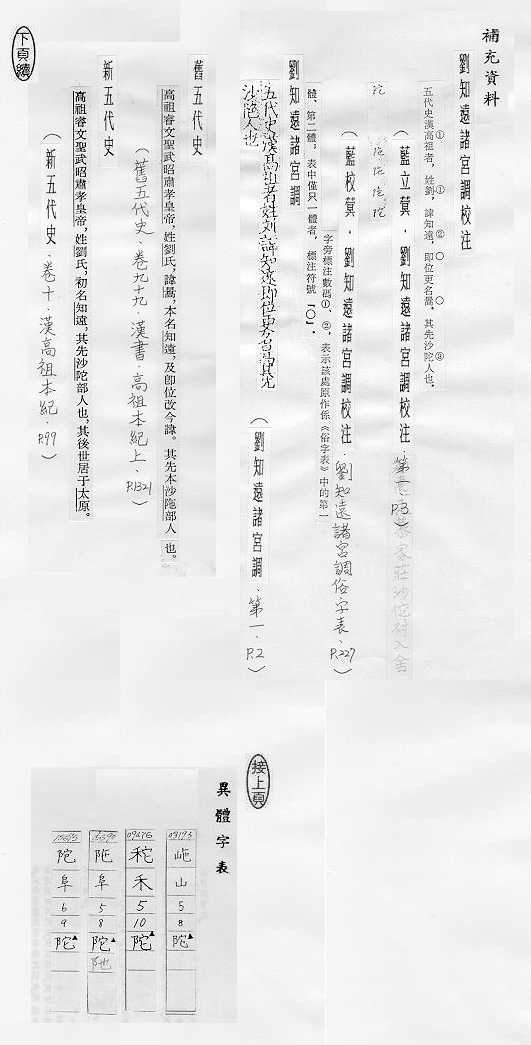 補充資料
劉知遠諸宮調校注
五代史漢高祖者，姓劉，諱知遠，即位更名暠。其先沙陀人也。
① ① ② 〇 〇 ③
（藍立蓂．劉知遠諸宮調校注．第一．P.3）
（藍校蓂．劉知遠諸宮調校注．劉知遠諸宮調俗字表．P.227）
字旁標注數碼①、②，表示該處原作係《俗字表》中的第一
體、第二體，表中僅只一體者，標注符號「〇」。
劉知遠諸宮調
五代史漢高祖者姓刘諱知遠即位更名暠其先
沙陁人也
（劉知遠諸宮調．第一．P.2）
舊五代史
高祖睿文聖武昭肅孝皇帝，姓劉氏，諱暠，本名知遠，及即位改今諱。其先本沙陁部人也。
（舊五代史．卷九十九．漢書．高祖本紀上．P.1321）
新五代史
高祖睿文聖武昭肅孝皇帝，姓劉氏，初名知遠，其先沙陀部人也，其後世居于太原。
（新五代史．卷十．漢高祖本紀．P.99）
下頁續
接上頁
異體字表
山
5
8
陀▲
禾
5
10
陀▲
陁
阜
5
8
陀▲
阜
6
9
陀▲